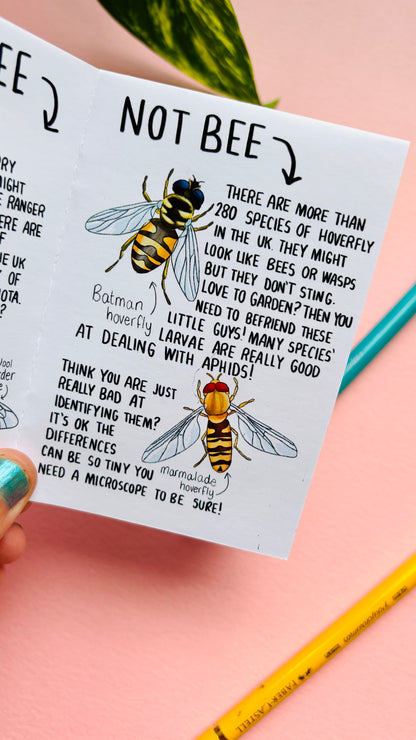 EE
RY
IGHT
E RANGER
ERE ARE
F
HE UK
Y OF
OTA.
?
ool
rder
e
NOT BEE
THERE ARE MORE THAN
280 SPECIES OF HOVERFLY
IN THE UK THEY MIGHT
LOOK LIKE BEES OR WASPS
BUT THEY DON'T STING.
LOVE TO GARDEN? THEN YOU
NEED TO BEFRIEND THESE
LITTLE GUYS! MANY SPECIES'
LARVAE ARE REALLY GOOD
AT DEALING WITH APHIDS!
Batman
hoverfly
THINK YOU ARE JUST
REALLY BAD AT
IDENTIFYING THEM?
IT'S OK THE
DIFFERENCES
CAN BE SO TINY YOU
NEED A MICROSCOPE TO BE SURE!
marmalade
hoverfly
FABER-CASTELL
Polychromos